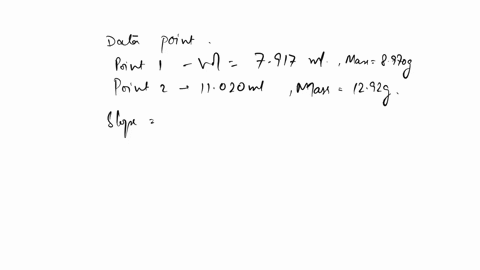 Data point.
Point 1 - Vol = 7.917 ml, Mass = 8.970g
Point 2 → 11.020ml, Mass = 12.92g.
Slope =